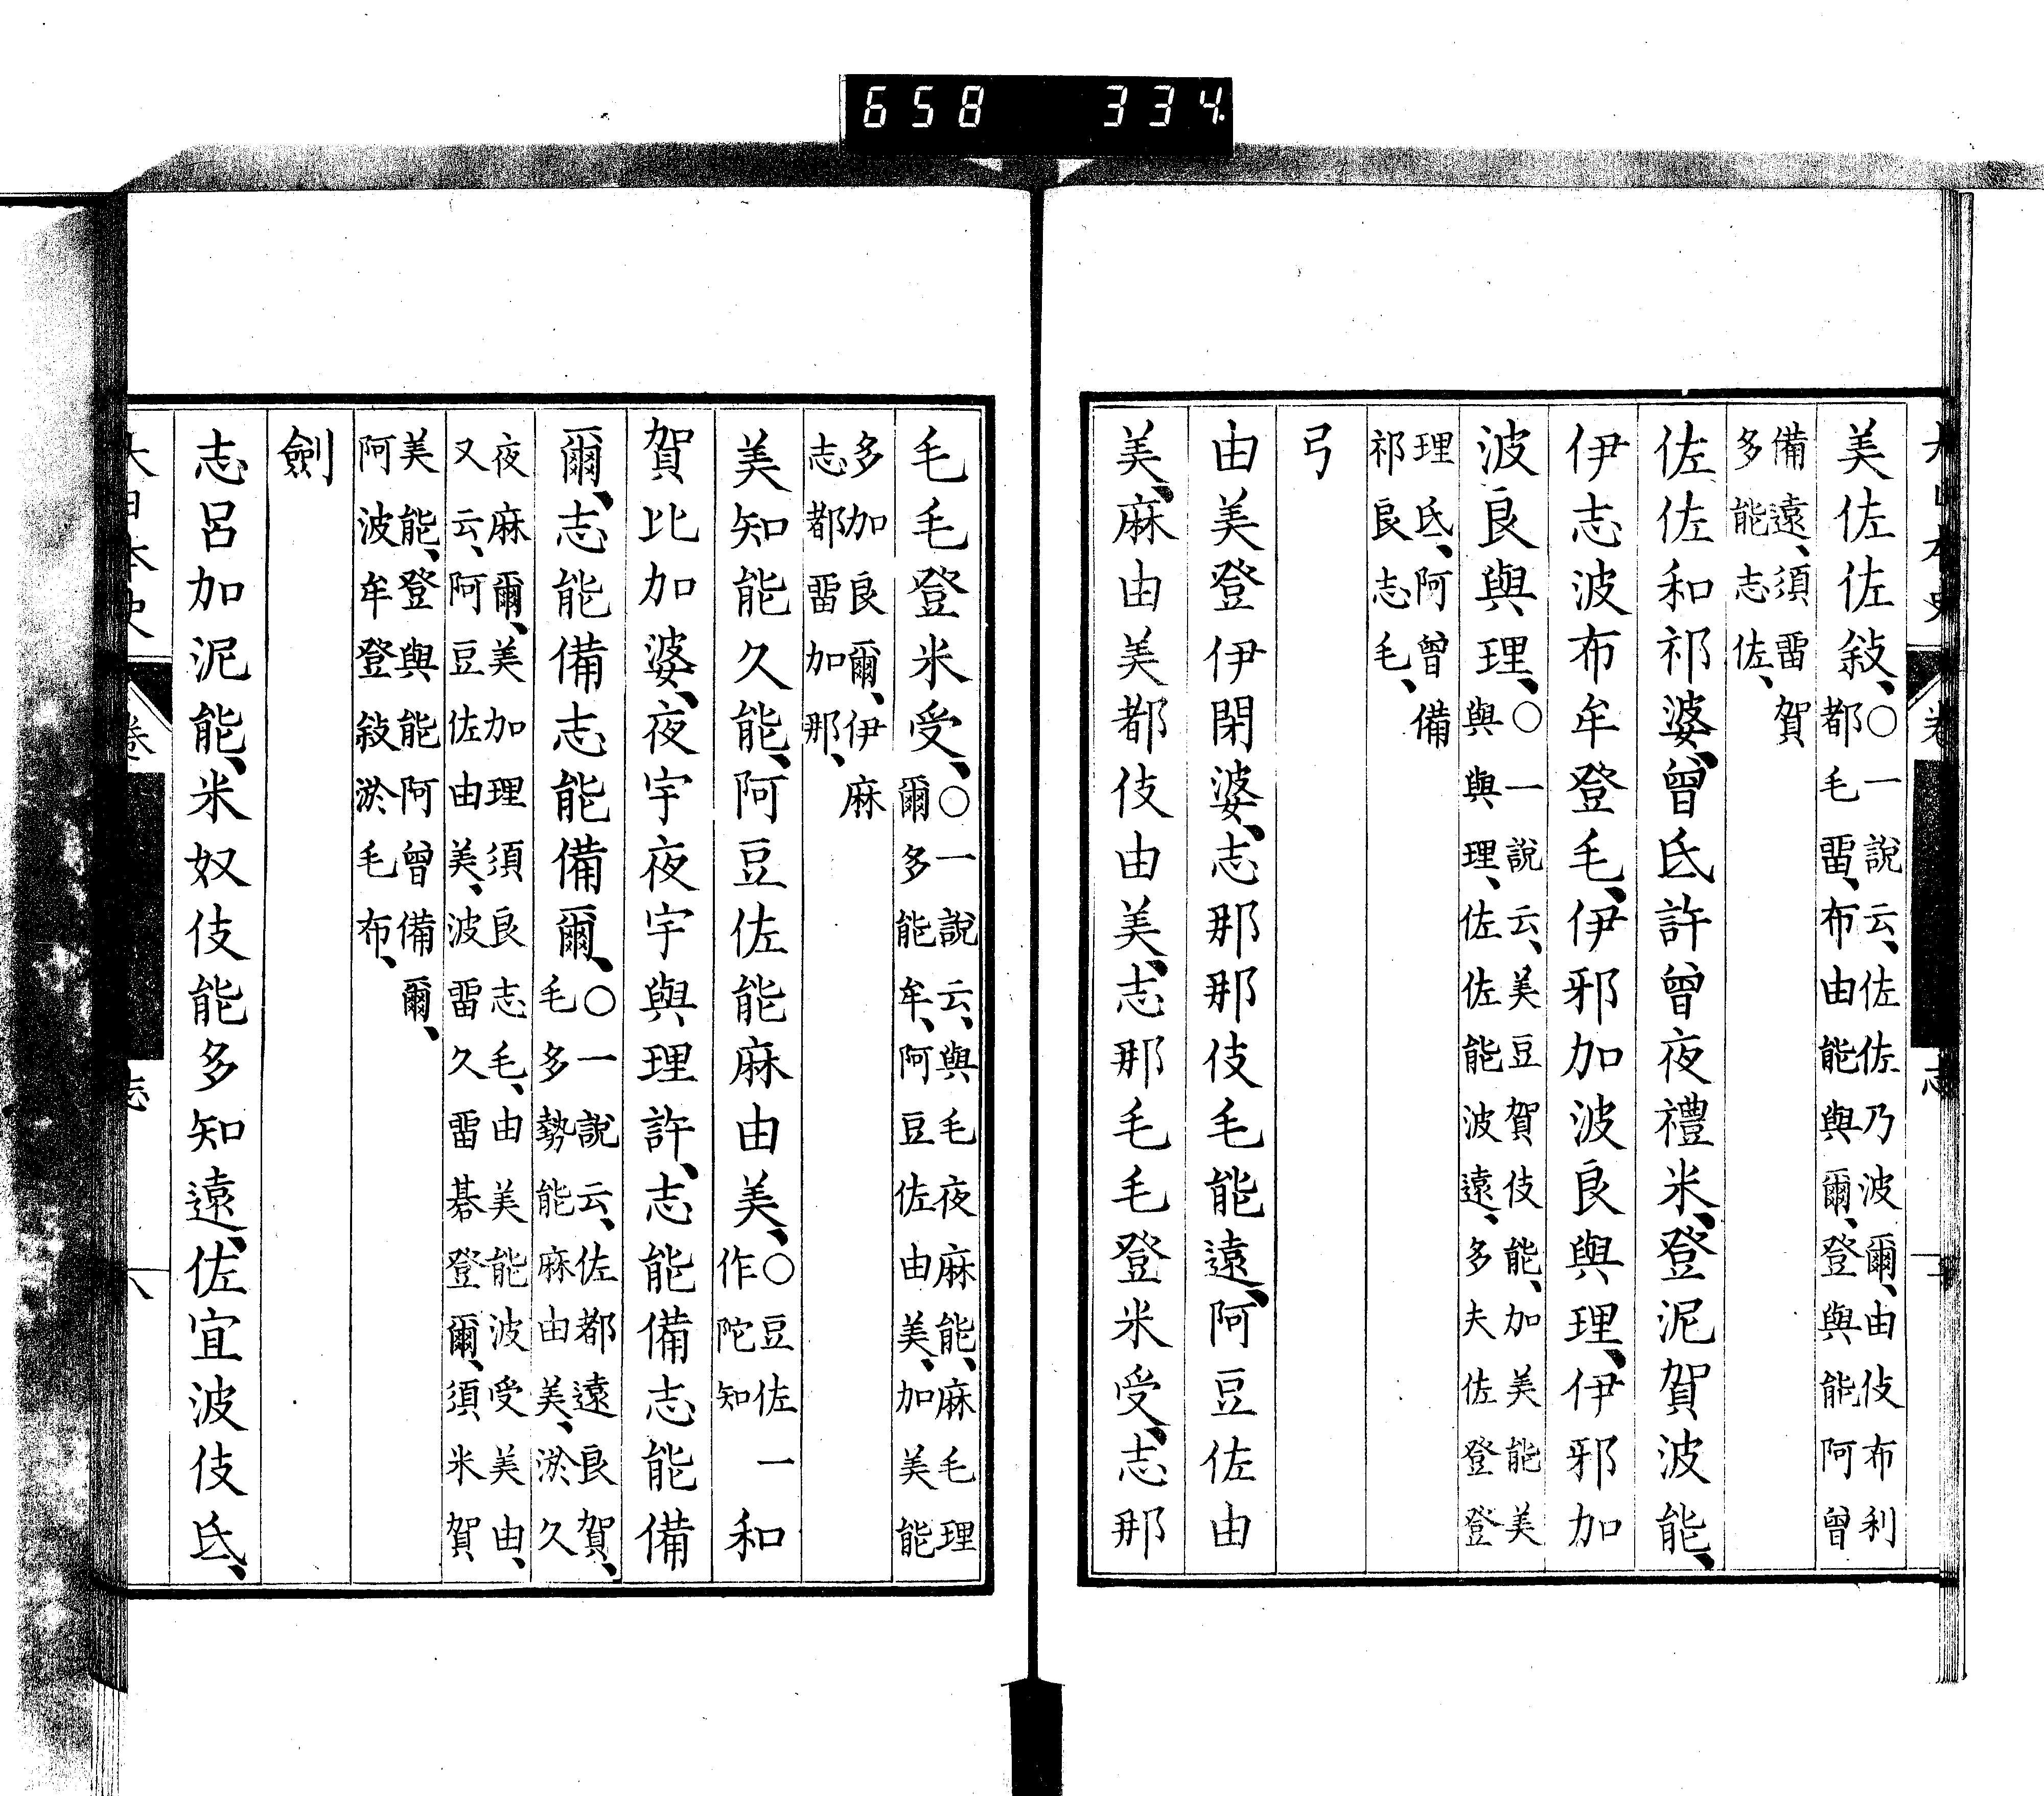 大日本史 卷 志
美佐佐敍、〇一說云、佐佐乃波爾、由伎布利
都毛畱、布由能與爾、登與能阿曾
備遠、須畱賀
多能志佐、
佐佐和祁婆、曾氐許曾夜禮米、登泥賀波能、
伊志波布牟登毛、伊邪加波良與理、伊邪加
波良與理、〇一說云、美豆賀伎能、加美能美
與與理、佐佐能波遠、多夫佐登登
理氐、阿曾備
祁良志毛、
弓
由美登伊閇婆、志那那伎毛能遠、阿豆佐由
美、麻由美都伎由美、志那毛毛登米受、志那
毛毛登米受、〇一說云、與毛夜麻能、麻毛理
爾多能牟、阿豆佐由美、加美能
多加良爾、伊麻
志都畱加那、
美知能久能、阿豆佐能麻由美、〇豆佐一和
作陀知
賀比加婆、夜宇夜宇與理許、志能備志能備
爾、志能備志能備爾、〇一說云、佐都遠良賀、
毛多勢能麻由美、淤久
夜麻爾、美加理須良志毛、由美能波受美由、
又云、阿豆佐由美、波畱久畱碁登爾、須米賀
美能、登與能阿曾備爾、
阿波牟登敍淤毛布、
劍
志呂加泥能、米奴伎能多知遠、佐宜波伎氐、
大日本史 卷 志 八